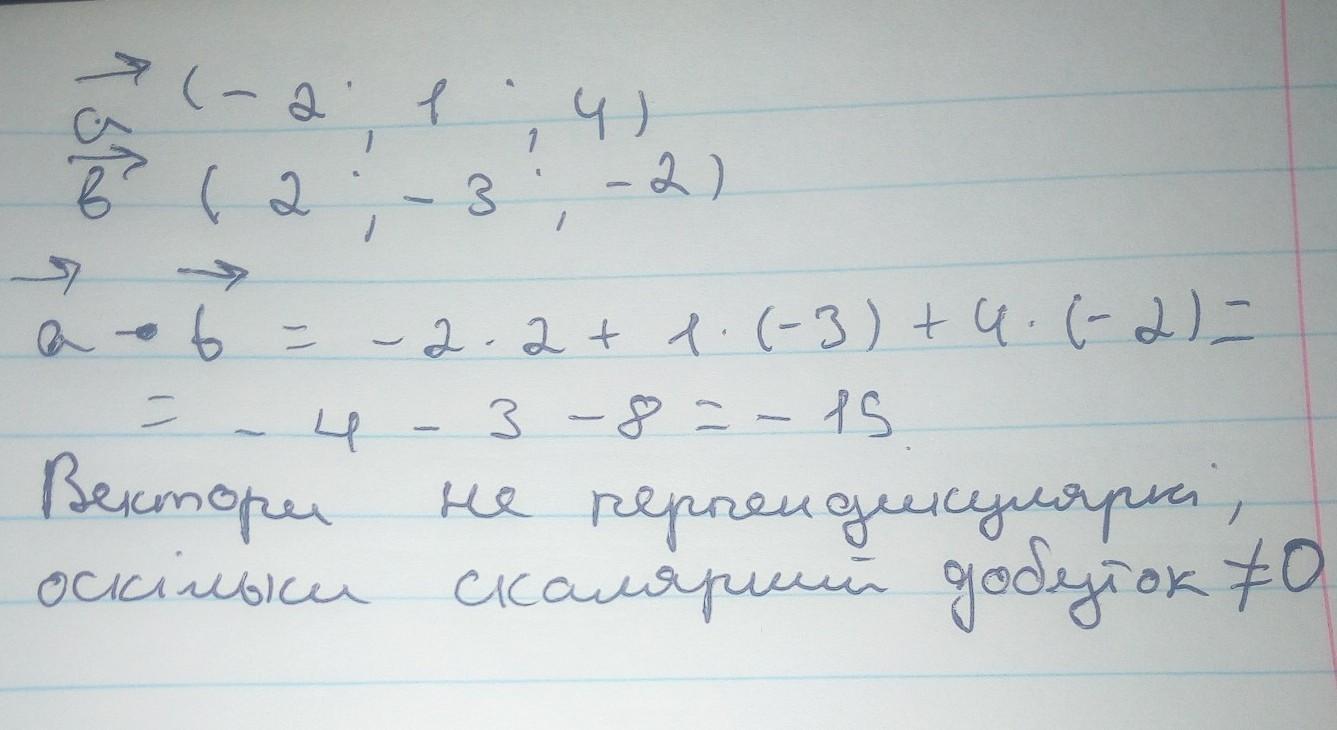 a⃗ (-2; 1; 4)
b⃗ (2; -3; -2)
a⃗ · b⃗ = -2·2 + 1·(-3) + 4·(-2) =
= -4 - 3 - 8 = -15.
Вектори не перпендикулярні,
оскільки скалярний добуток ≠0